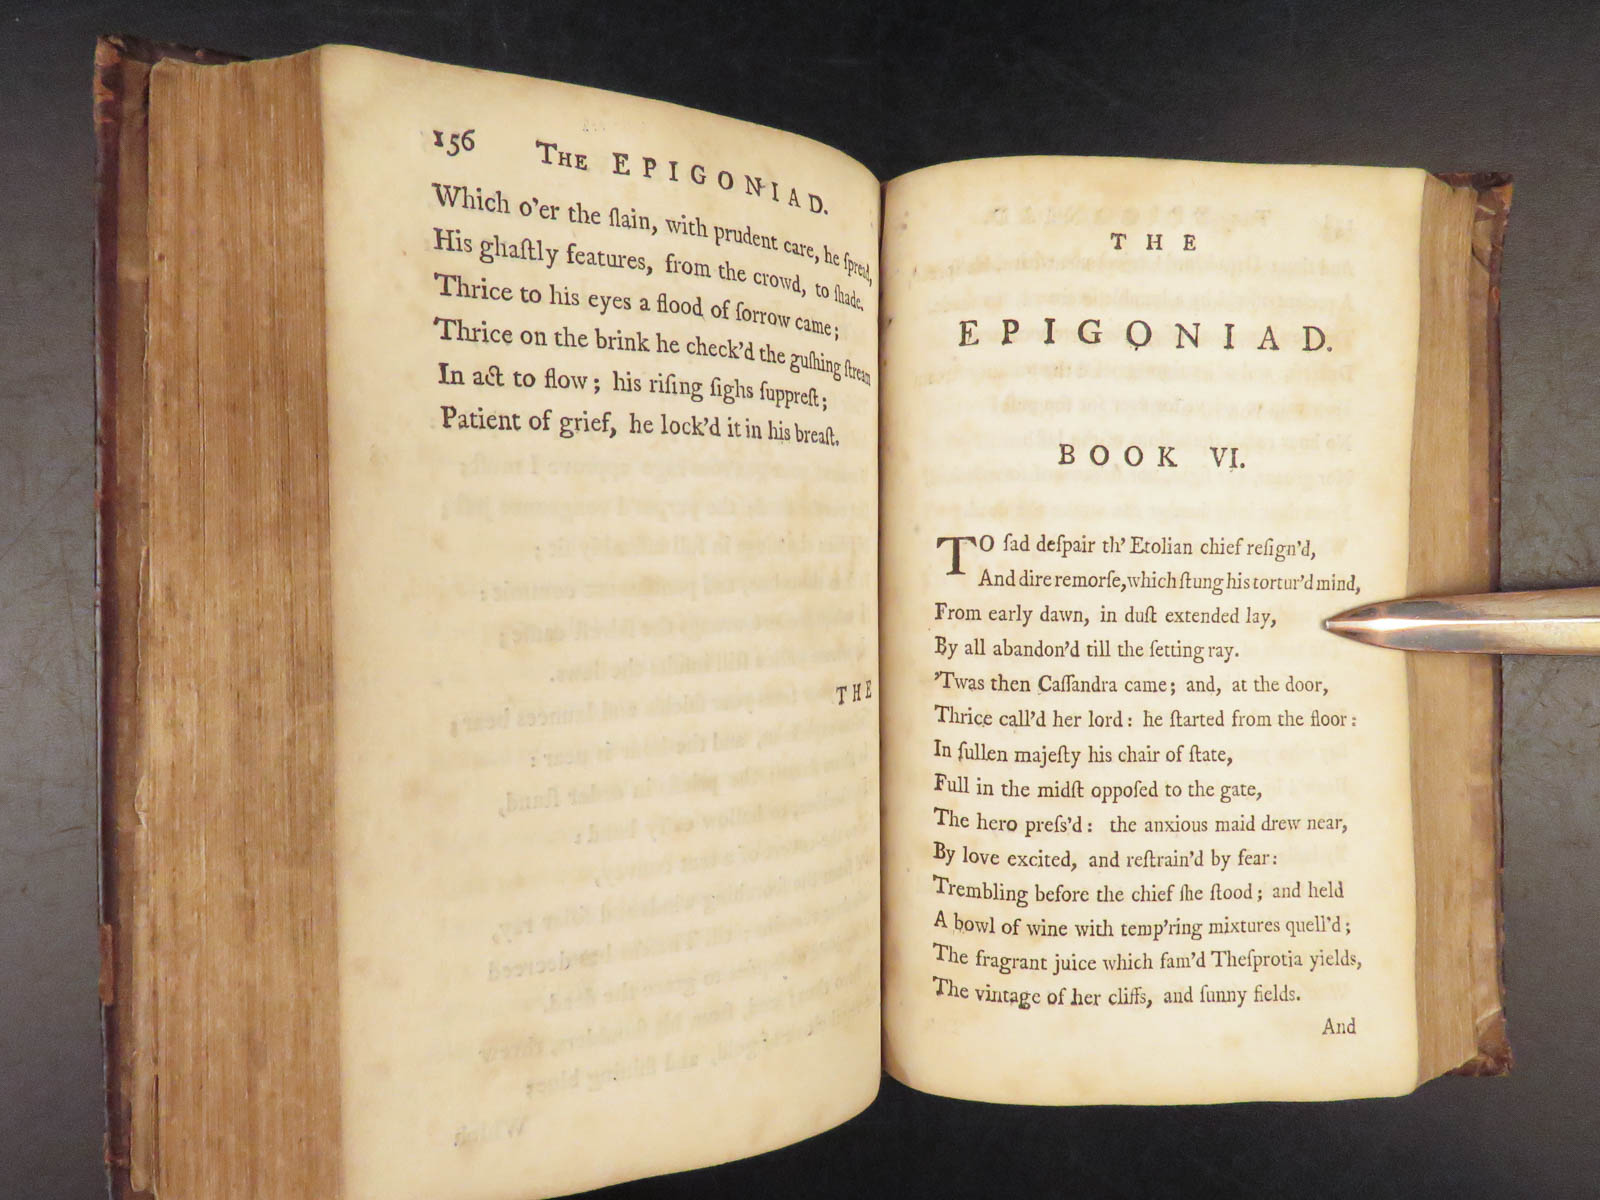 156 THE EPIGONIAD.
Which o'er the ſlain, with prudent care, he ſpread,
His ghaſtly features, from the crowd, to ſhade.
Thrice to his eyes a flood of ſorrow came;
Thrice on the brink he check'd the guſhing ſtream
In act to flow; his riſing ſighs ſuppreſt;
Patient of grief, he lock'd it in his breaſt.
THE
THE
EPIGONIAD.
BOOK VI.
TO ſad deſpair th' Etolian chief reſign'd,
And dire remorſe, which ſtung his tortur'd mind,
From early dawn, in duſt extended lay,
By all abandon'd till the ſetting ray.
'Twas then Caſſandra came; and, at the door,
Thrice call'd her lord: he ſtarted from the floor:
In ſullen majeſty his chair of ſtate,
Full in the midſt oppoſed to the gate,
The hero preſs'd: the anxious maid drew near,
By love excited, and reſtrain'd by fear:
Trembling before the chief ſhe ſtood; and held
A bowl of wine with temp'ring mixtures quell'd;
The fragrant juice which fam'd Theſprotia yields,
The vintage of her cliffs, and ſunny fields.
And